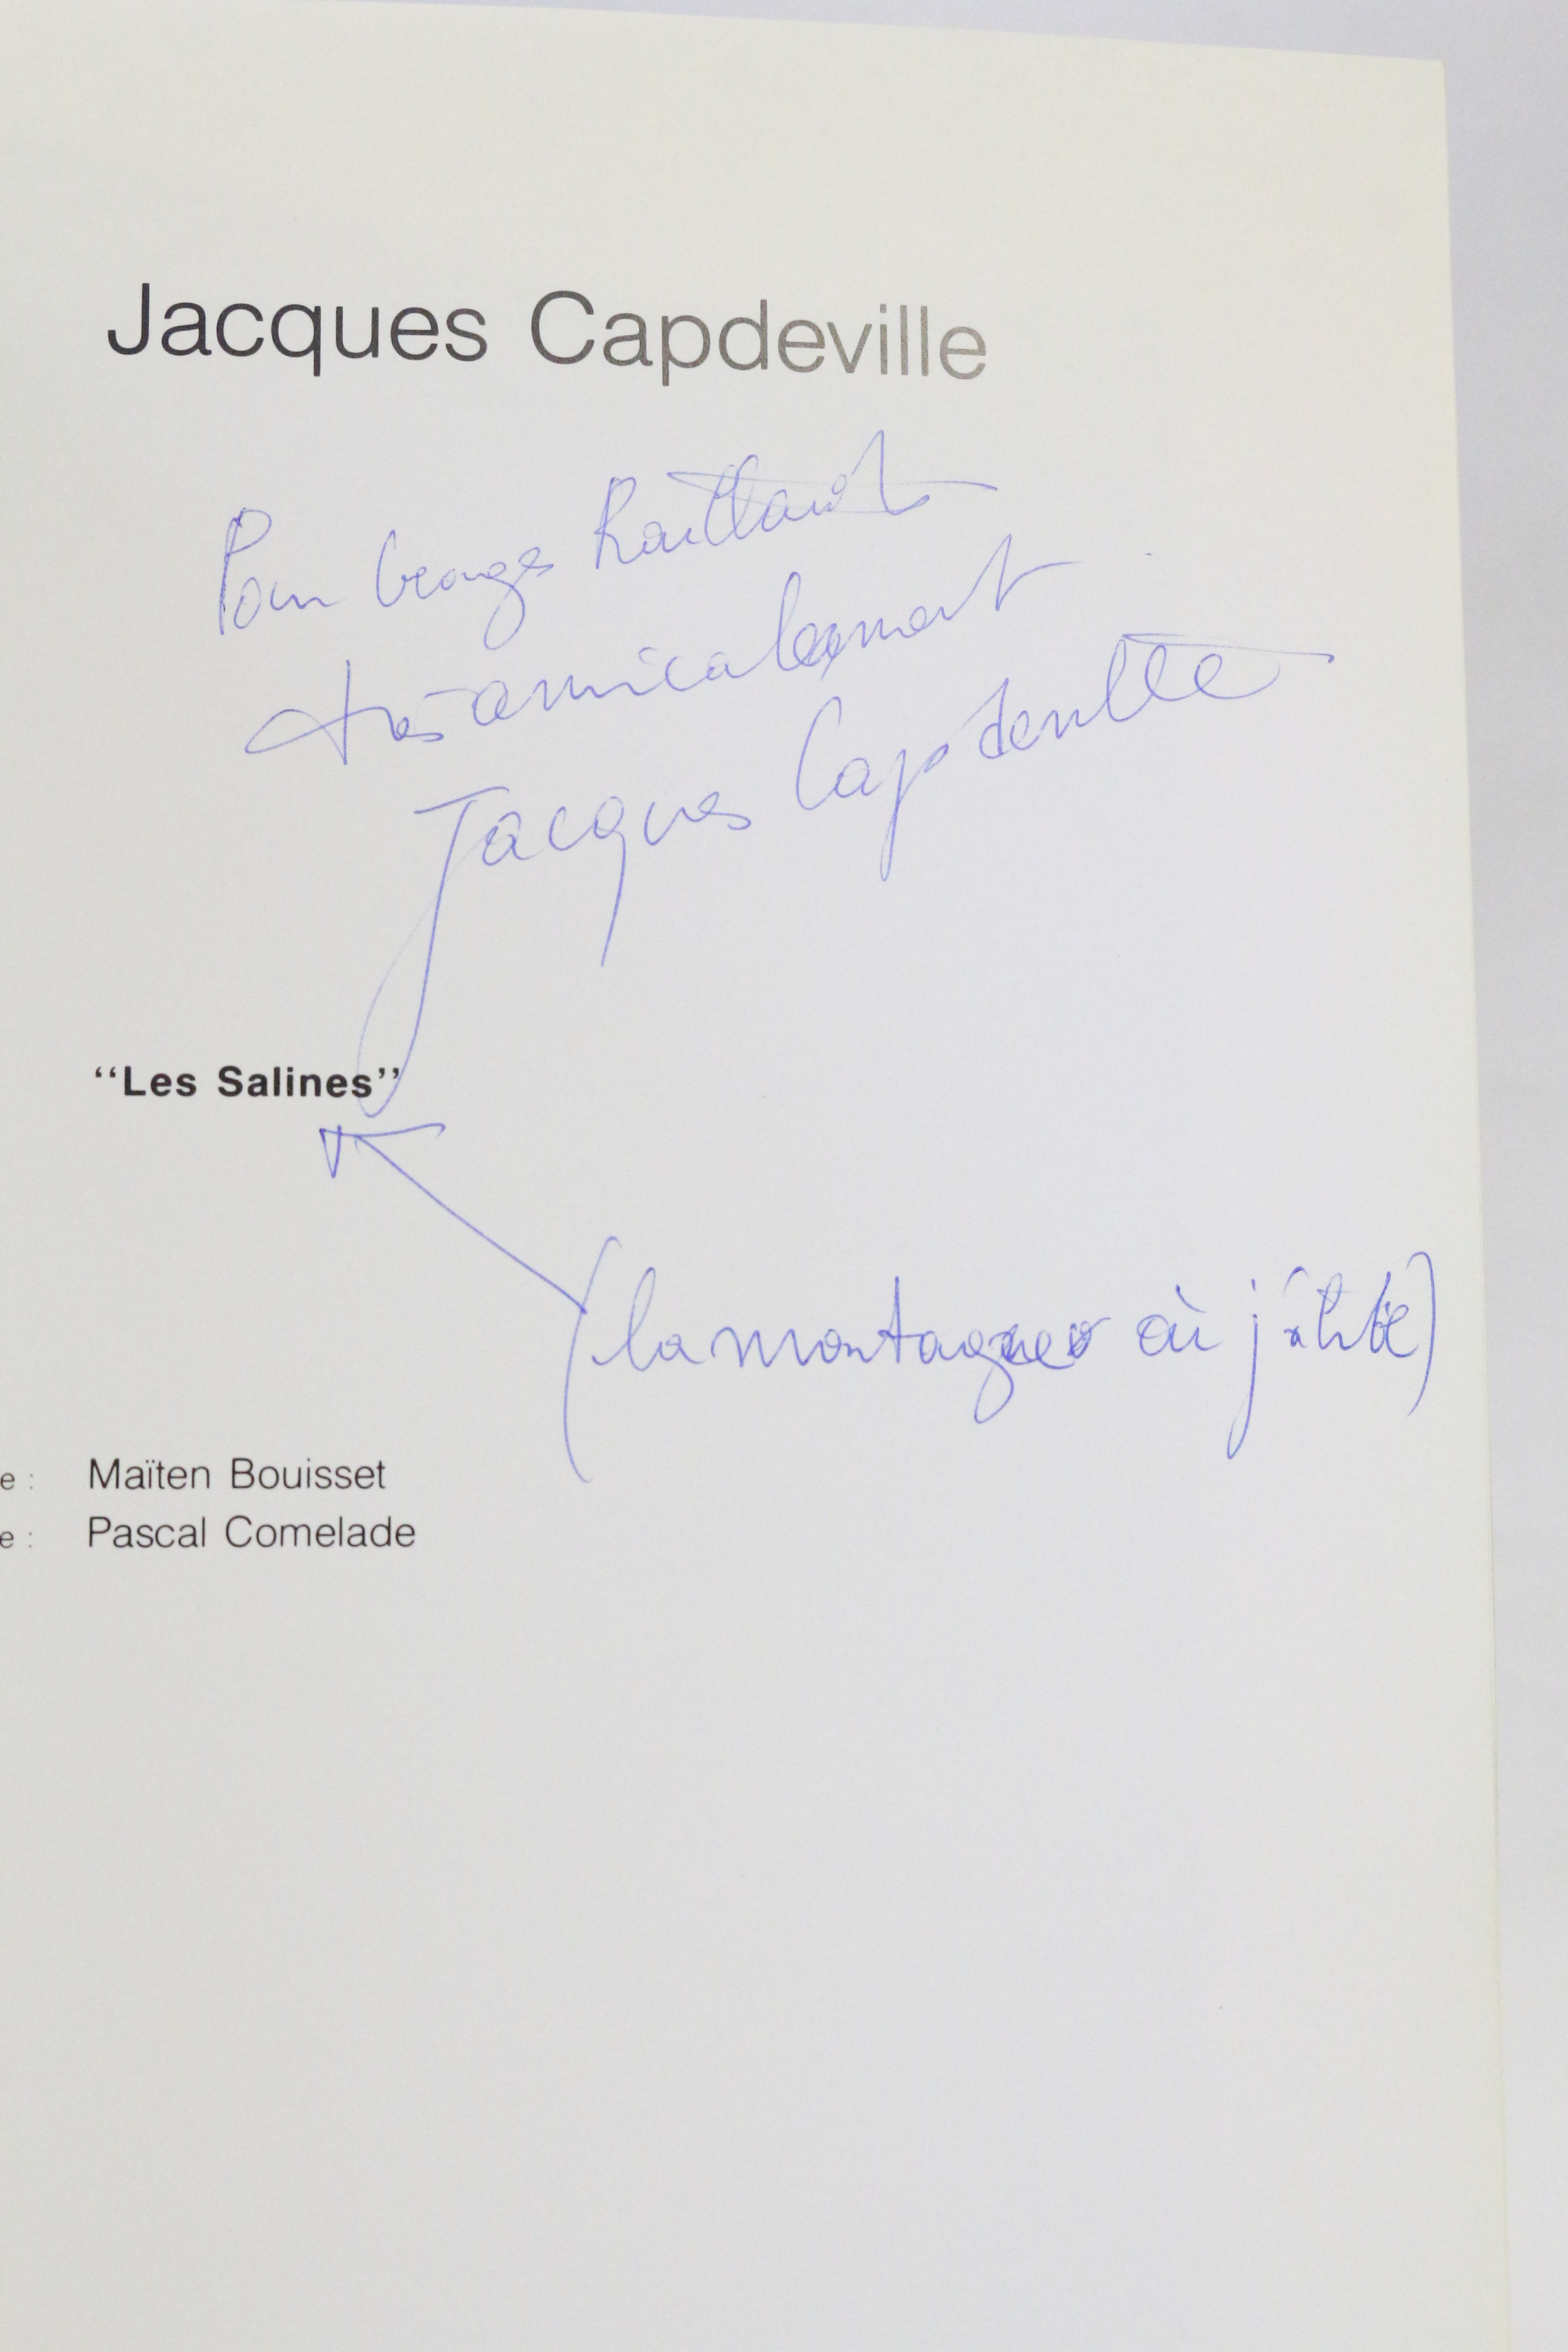 Jacques Capdeville
Pour Georges Raillard
très amicalement
Jacques Capdeville
“Les Salines”
(la montagne où j'habite)
e : Maïten Bouisset
e : Pascal Comelade